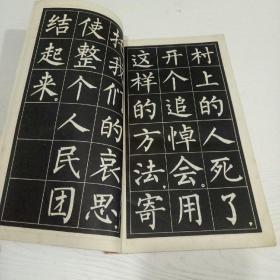 村上的人死了，
开个追悼会。用
这样的方法，寄
托我们的哀思，
使整个人民团
结起来。